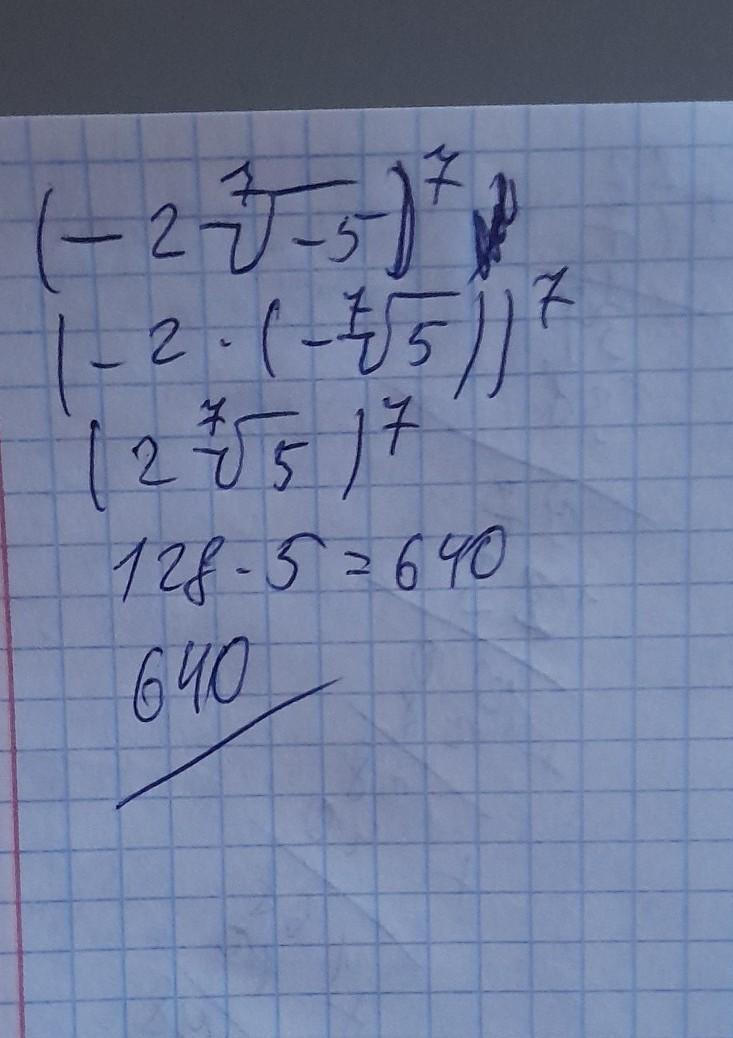 (-2 ⁷√-5)⁷
(-2 · (-⁷√5))⁷
(2 ⁷√5)⁷
128 · 5 = 640
640